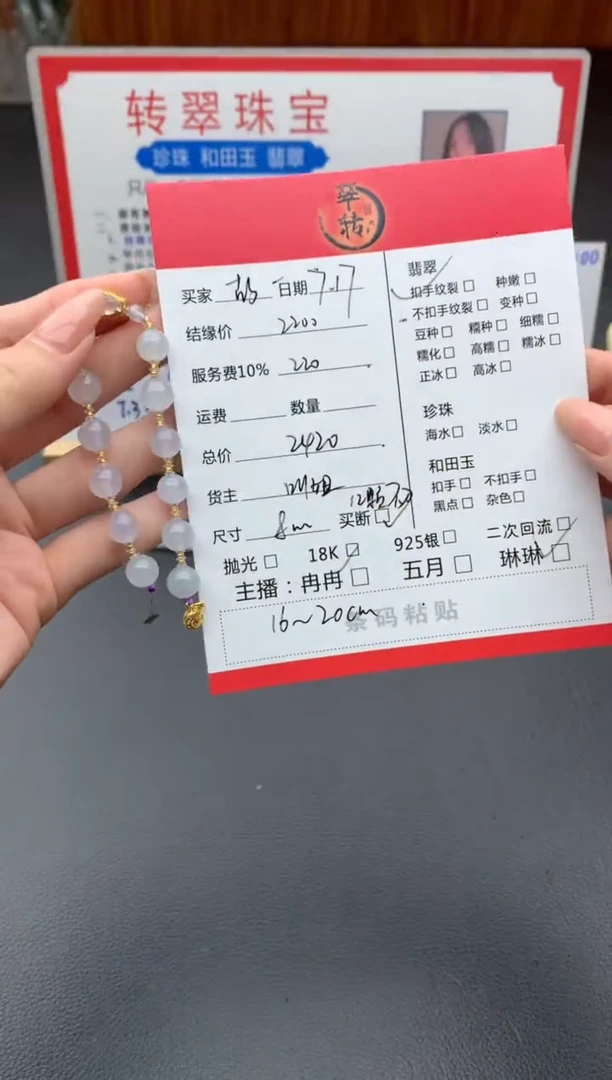 转翠珠宝
珍珠 和田玉 翡翠
翠转
买家 日期 7.17
结缘价 2200
服务费10% 220
运费 数量
总价 2420
货主
尺寸 8m 买断
抛光 18K 925银 二次回流
主播：冉冉 五月 琳琳
16~20cm
条码粘贴
翡翠
扣手纹裂 种嫩
不扣手纹裂 变种
豆种 糯种 细糯
糯化 高糯 糯冰
正冰 高冰
珍珠
海水 淡水
和田玉
扣手 不扣手
黑点 杂色